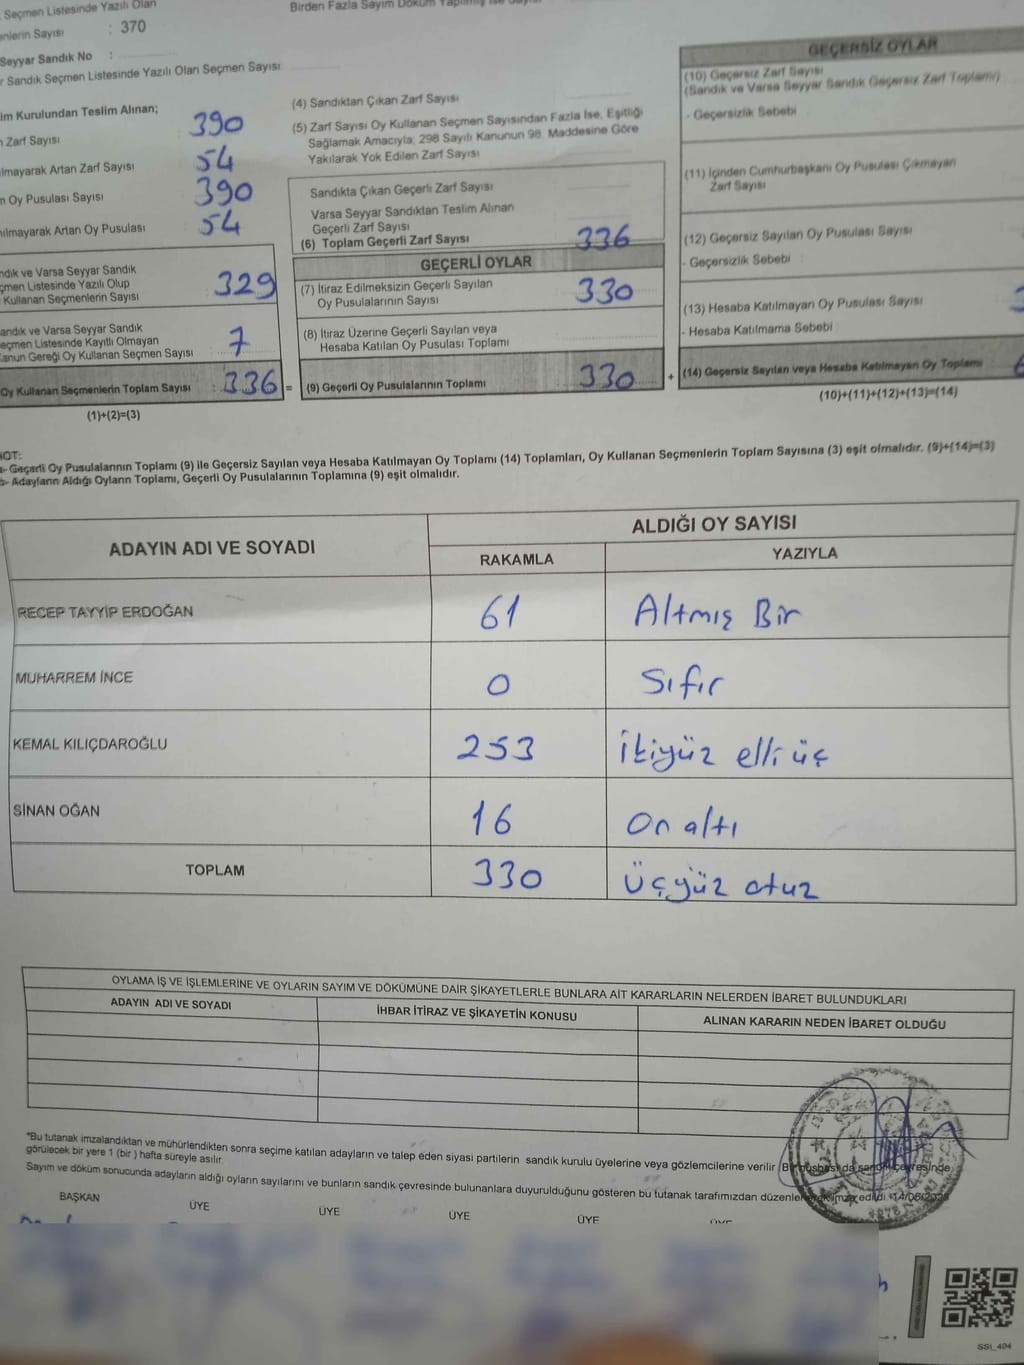 Seçmen Listesinde Yazılı Olan
Sayısı : 370
Seyyar Sandık No :
Sandık Seçmen Listesinde Yazılı Olan Seçmen Sayısı
Kurulundan Teslim Alınan;
Zarf Sayısı 390
Artan Zarf Sayısı 54
Oy Pusulası Sayısı 390
Artan Oy Pusulası 54
ve Varsa Seyyar Sandık
Listesinde Yazılı Olup
Kullanan Seçmenlerin Sayısı 329
ve Varsa Seyyar Sandık
Listesinde Kayıtlı Olmayan
Gereği Oy Kullanan Seçmen Sayısı 7
Oy Kullanan Seçmenlerin Toplam Sayısı : 336 =
(1)+(2)=(3)
Birden Fazla Sayım Döküm
(4) Sandıktan Çıkan Zarf Sayısı
(5) Zarf Sayısı Oy Kullanan Seçmen Sayısından Fazla İse, Eşitliği
Sağlamak Amacıyla; 298 Sayılı Kanunun 98. Maddesine Göre
Yakılarak Yok Edilen Zarf Sayısı
Sandıkta Çıkan Geçerli Zarf Sayısı
Varsa Seyyar Sandıktan Teslim Alınan
Geçerli Zarf Sayısı
(6) Toplam Geçerli Zarf Sayısı 336
GEÇERLİ OYLAR
(7) İtiraz Edilmeksizin Geçerli Sayılan
Oy Pusulalarının Sayısı 330
(8) İtiraz Üzerine Geçerli Sayılan veya
Hesaba Katılan Oy Pusulası Toplamı
(9) Geçerli Oy Pusulalarının Toplamı 330 +
GEÇERSİZ OYLAR
(10) Geçersiz Zarf Sayısı
(Sandık ve Varsa Seyyar Sandık Geçersiz Zarf Toplamı)
- Geçersizlik Sebebi
(11) İçinden Cumhurbaşkanı Oy Pusulası Çıkmayan
Zarf Sayısı
(12) Geçersiz Sayılan Oy Pusulası Sayısı
- Geçersizlik Sebebi :
(13) Hesaba Katılmayan Oy Pusulası Sayısı
- Hesaba Katılmama Sebebi :
(14) Geçersiz Sayılan veya Hesaba Katılmayan Oy Toplamı
(10)+(11)+(12)+(13)=(14)
NOT:
a- Geçerli Oy Pusulalarının Toplamı (9) ile Geçersiz Sayılan veya Hesaba Katılmayan Oy Toplamı (14) Toplamları, Oy Kullanan Seçmenlerin Toplam Sayısına (3) eşit olmalıdır. (9)+(14)=(3)
b- Adayların Aldığı Oyların Toplamı, Geçerli Oy Pusulalarının Toplamına (9) eşit olmalıdır.
ADAYIN ADI VE SOYADI
ALDIĞI OY SAYISI
RAKAMLA YAZIYLA
RECEP TAYYİP ERDOĞAN 61 Altmış Bir
MUHARREM İNCE 0 Sıfır
KEMAL KILIÇDAROĞLU 253 İkiyüz elli üç
SİNAN OĞAN 16 On altı
TOPLAM 330 Üçyüz otuz
OYLAMA İŞ VE İŞLEMLERİNE VE OYLARIN SAYIM VE DÖKÜMÜNE DAİR ŞİKAYETLERLE BUNLARA AİT KARARLARIN NELERDEN İBARET BULUNDUKLARI
ADAYIN ADI VE SOYADI İHBAR İTİRAZ VE ŞİKAYETİN KONUSU ALINAN KARARIN NEDEN İBARET OLDUĞU
*Bu tutanak imzalandıktan ve mühürlendikten sonra seçime katılan adayların ve talep eden siyasi partilerin sandık kurulu üyelerine veya gözlemcilerine verilir. Bir nüshası da sandık çevresinde
görülecek bir yere 1 (bir ) hafta süreyle asılır.
Sayım ve döküm sonucunda adayların aldığı oyların sayılarını ve bunların sandık çevresinde bulunanlara duyurulduğunu gösteren bu tutanak tarafımızdan düzenlenerek imza edildi. 14/05/2023
BAŞKAN ÜYE ÜYE ÜYE ÜYE
SSI_404